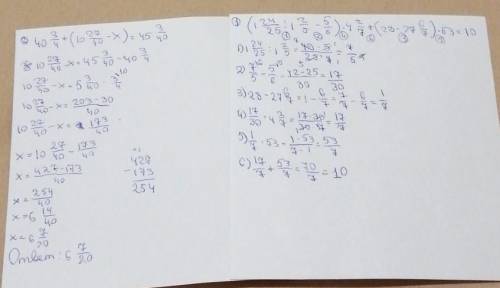 ② 40 3/4 + (10 27/40 - x) = 45 3/40
10 27/40 - x = 45 3/40 - 40 3/4
10 27/40 - x = 5 3/40 - 3/4
10 27/40 - x = 203-30/40
10 27/40 - x = 173/40
x = 10 27/40 - 173/40
x = 427-173/40
x = 254/40
x = 6 14/40
x = 6 7/20
Ответ: 6 7/20
427
-173
254
① (1 24/25 : 1 2/5 - 5/6) · 4 2/7 + (28 - 27 6/7) · 53 = 10
1) 1 24/25 : 1 2/5 =
2) 7/5 - 5/6 = 42-25/30 = 17/30
3) 28 - 27 6/7 = 1 - 6/7 = 7/7 - 6/7 = 1/7
4) 17/30 · 4 2/7 = 17·30/30·7 = 17/7
5) 1/7 · 53 = 1·53/7·1 = 53/7
6) 17/7 + 53/7 = 70/7 = 10